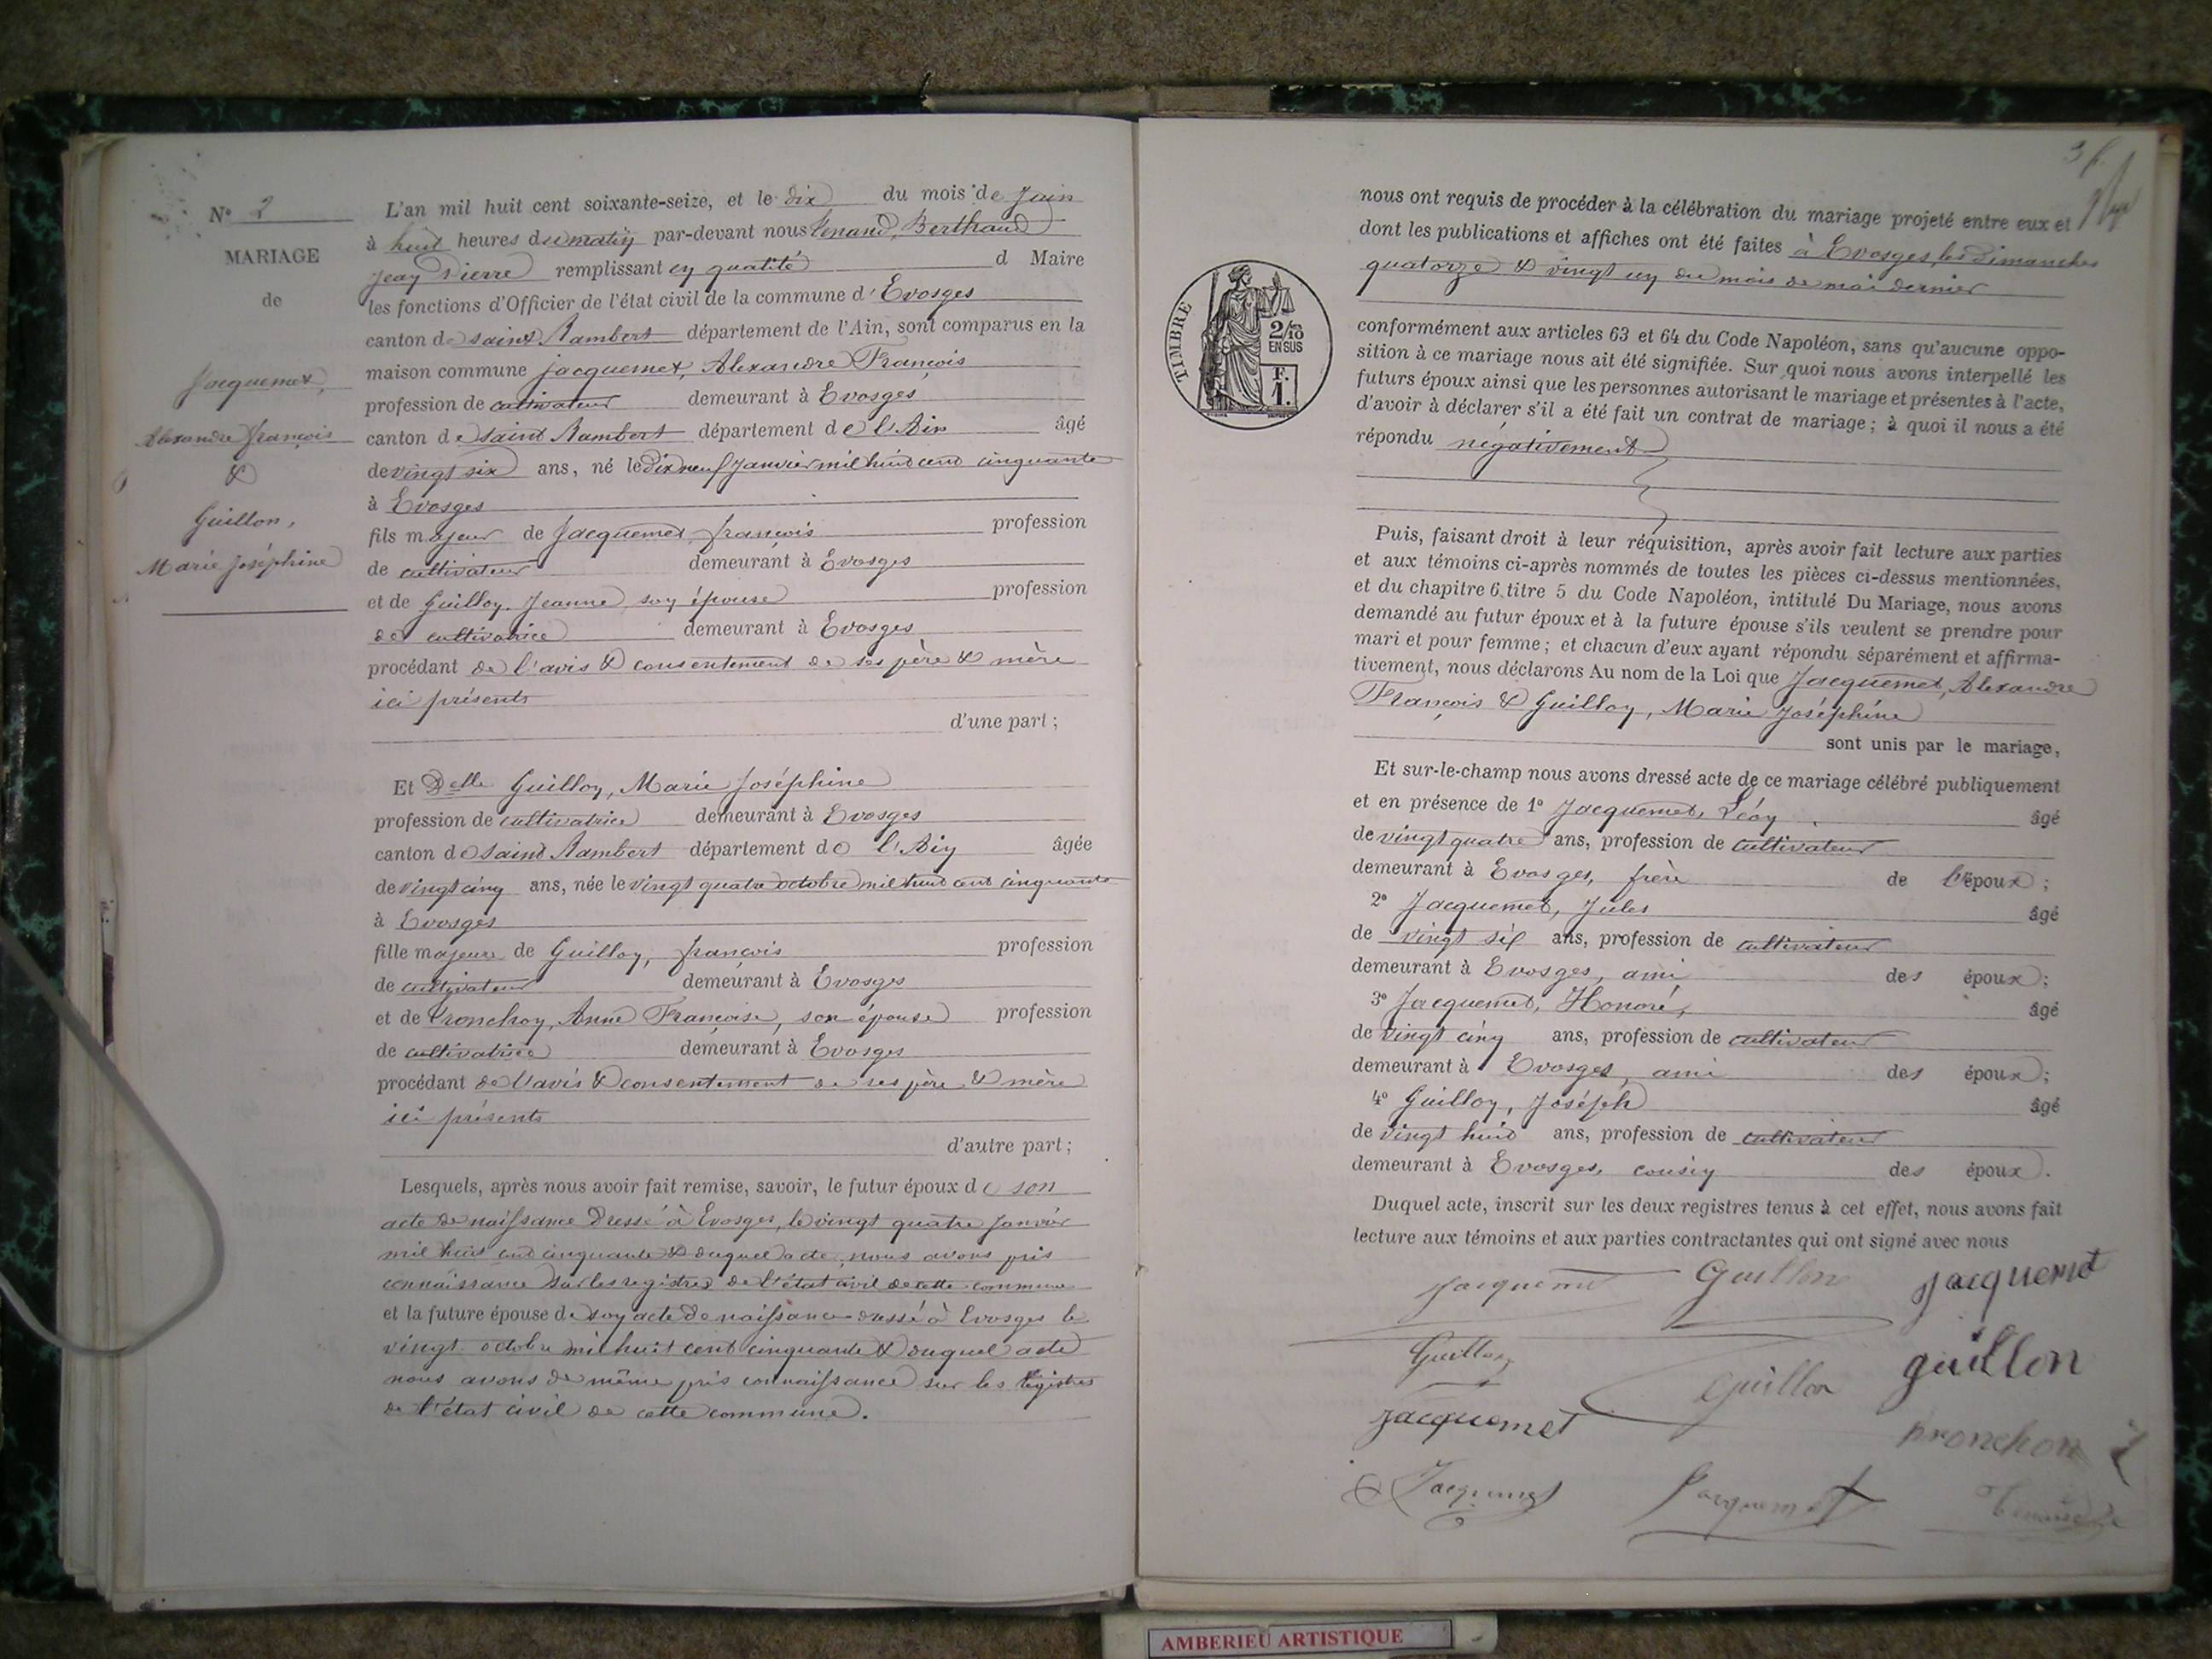 N° 2
MARIAGE
de
Jacquemet,
Alexandre françois
&
Guillon,
Marie Joséphine
L'an mil huit cent soixante-seize, et le dix du mois de Juin
à huit heures du matin par-devant nous Tenand, Berthaud
Jean Pierre remplissant en qualité d Maire
les fonctions d'Officier de l'état civil de la commune d' Evosges
canton de saint Rambert département de l'Ain, sont comparus en la
maison commune jacquemet, Alexandre François
profession de cultivateur demeurant à Evosges
canton de saint Rambert département de l'Ain âgé
de vingt six ans, né le dix neuf Janvier mil huit cent cinquante
à Evosges
fils majeur de Jacquemet, françois profession
de cultivateur demeurant à Evosges
et de Guillon, Jeanne, son épouse profession
de cultivatrice demeurant à Evosges
procédant de l'avis & consentement de ses père & mère
ici présents
d'une part ;
Et Delle Guillon, Marie Joséphine
profession de cultivatrice demeurant à Evosges
canton de saint Rambert département de l'Ain âgée
de vingt cinq ans, née le vingt quatre octobre mil huit cent cinquante
à Evosges
fille majeure de Guillon, françois profession
de cultivateur demeurant à Evosges
et de Pronchon, Anne Françoise, son épouse profession
de cultivatrice demeurant à Evosges
procédant de l'avis & consentement de ses père & mère
ici présents
d'autre part ;
Lesquels, après nous avoir fait remise, savoir, le futur époux de son
acte de naissance dressé à Evosges, le vingt quatre Janvier
mil huit cent cinquante & duquel acte, nous avons pris
connaissance sur les registres de l'état civil de cette commune
et la future épouse de son acte de naissance dressé à Evosges le
vingt octobre mil huit cent cinquante & duquel acte
nous avons de même pris connaissance sur les registres
de l'état civil de cette commune.
3
nous ont requis de procéder à la célébration du mariage projeté entre eux et
dont les publications et affiches ont été faites à Evosges, les dimanches
quatorze & vingt un du mois de mai dernier
TIMBRE
2/10
EN SUS
F.
1.
conformément aux articles 63 et 64 du Code Napoléon, sans qu'aucune oppo-
sition à ce mariage nous ait été signifiée. Sur quoi nous avons interpellé les
futurs époux ainsi que les personnes autorisant le mariage et présentes à l'acte,
d'avoir à déclarer s'il a été fait un contrat de mariage ; à quoi il nous a été
répondu négativement
Puis, faisant droit à leur réquisition, après avoir fait lecture aux parties
et aux témoins ci-après nommés de toutes les pièces ci-dessus mentionnées,
et du chapitre 6 titre 5 du Code Napoléon, intitulé Du Mariage, nous avons
demandé au futur époux et à la future épouse s'ils veulent se prendre pour
mari et pour femme ; et chacun d'eux ayant répondu séparément et affirma-
tivement, nous déclarons Au nom de la Loi que Jacquemet, Alexandre
François & Guillon, Marie Joséphine
sont unis par le mariage,
Et sur-le-champ nous avons dressé acte de ce mariage célébré publiquement
et en présence de 1° Jacquemet, Léon âgé
de vingt quatre ans, profession de cultivateur
demeurant à Evosges, frère de l'époux ;
2° Jacquemet, Jules âgé
de vingt six ans, profession de cultivateur
demeurant à Evosges, ami des époux ;
3° Jacquemet, Honoré, âgé
de vingt cinq ans, profession de cultivateur
demeurant à Evosges, ami des époux ;
4° Guillon, Joséph âgé
de vingt huit ans, profession de cultivateur
demeurant à Evosges, cousin des époux .
Duquel acte, inscrit sur les deux registres tenus à cet effet, nous avons fait
lecture aux témoins et aux parties contractantes qui ont signé avec nous
Jacquemet Guillon Jacquemet
Guillon Guillon guillon
Jacquemet pronchon
Jacquemet Jacquemet
AMBERIEU ARTISTIQUE